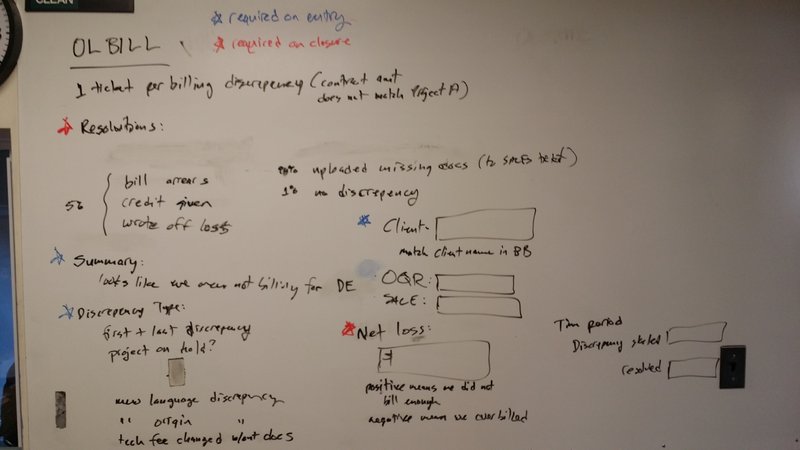 CLEAN
☆ required on entry
☆ required on closure
OL BILL
1 ticket per billing discrepency (contract amt
does not match Project A)
☆ Resolutions:
bill arrears
credit given
wrote off loss
uploaded missing docs (to SALEs ticket)
1% no discrepency
☆ Client-
match client name in BB
☆ Summary:
looks like we were not billing for DE
OQR:
SALE:
☆ Discrepency Type:
first + last discrepency
project on hold?
new language discrepency
" origin "
tech fee changed w/out docs
☆ Net loss:
positive means we did not
bill enough
negative means we overbilled
Time period
Discrepency started
resolved